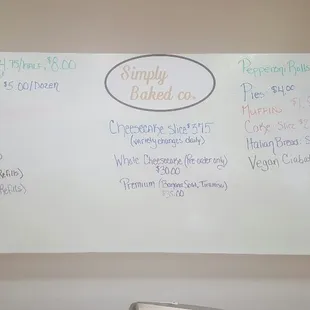 $8.00
$5.00/DOZEN
Simply
Baked co.
Cheesecake slice $5.75
(variety changes daily)
Whole Cheesecake (Pre order only)
$30.00
Premium (Banana Split, Tiramisu)
Pepperoni Rolls
Pies $4.00
Muffins
Cake Slice
Italian Bread
Vegan